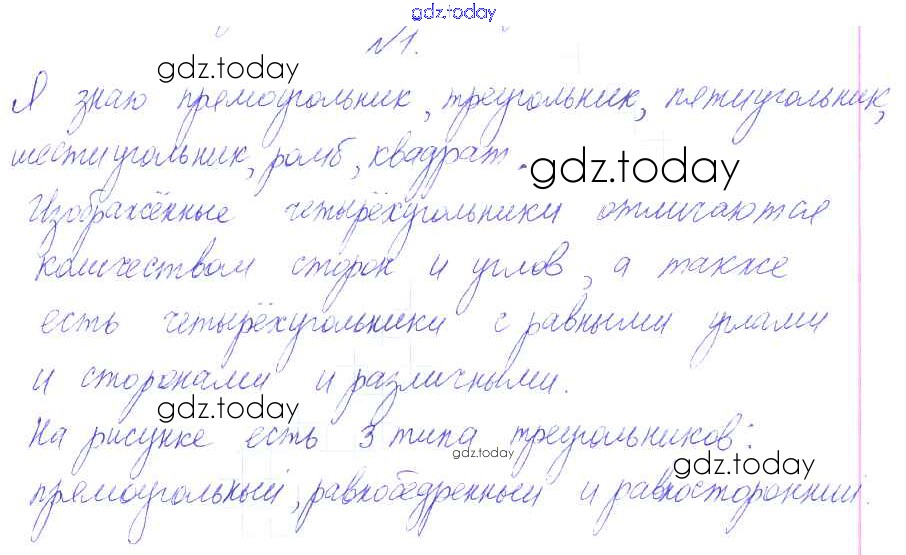 gdz.today
№1.
gdz.today
Я знаю прямоугольник, треугольник, пятиугольник,
шестиугольник, ромб, квадрат.
gdz.today
Изображённые четырёхугольники отличаются
количеством сторон и углов, а также
есть четырёхугольники с равными углами
и сторонами и различными.
gdz.today
На рисунке есть 3 типа треугольников:
gdz.today
gdz.today
прямоугольный, равнобедренный и равносторонний.